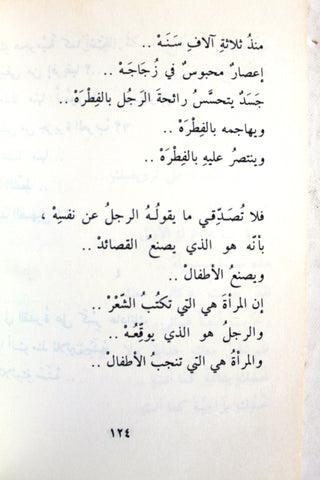 منذُ ثلاثةِ آلافِ سَنَهْ ..
إعصارٌ محبوسٌ في زُجَاجَهْ ..
جَسَدٌ يتحسَّسُ رائحةَ الرَجُل بالفِطْرَهْ ..
ويهاجمه بالفِطْرَهْ ..
وينتصرُ عليهِ بالفِطْرَهْ ..
فلا تُصَدِّقي ما يقولُهُ الرجلُ عن نفسِهْ ،
بأنَّه هو الذي يصنعُ القصائدْ ..
ويصنعُ الأطفالْ ..
إن المرأةَ هي التي تكتُبُ الشِّعْرْ ..
والرجلُ هو الذي يوقِّعُهْ ..
والمرأةُ هي التي تنجبُ الأطفالْ ..
١٢٤